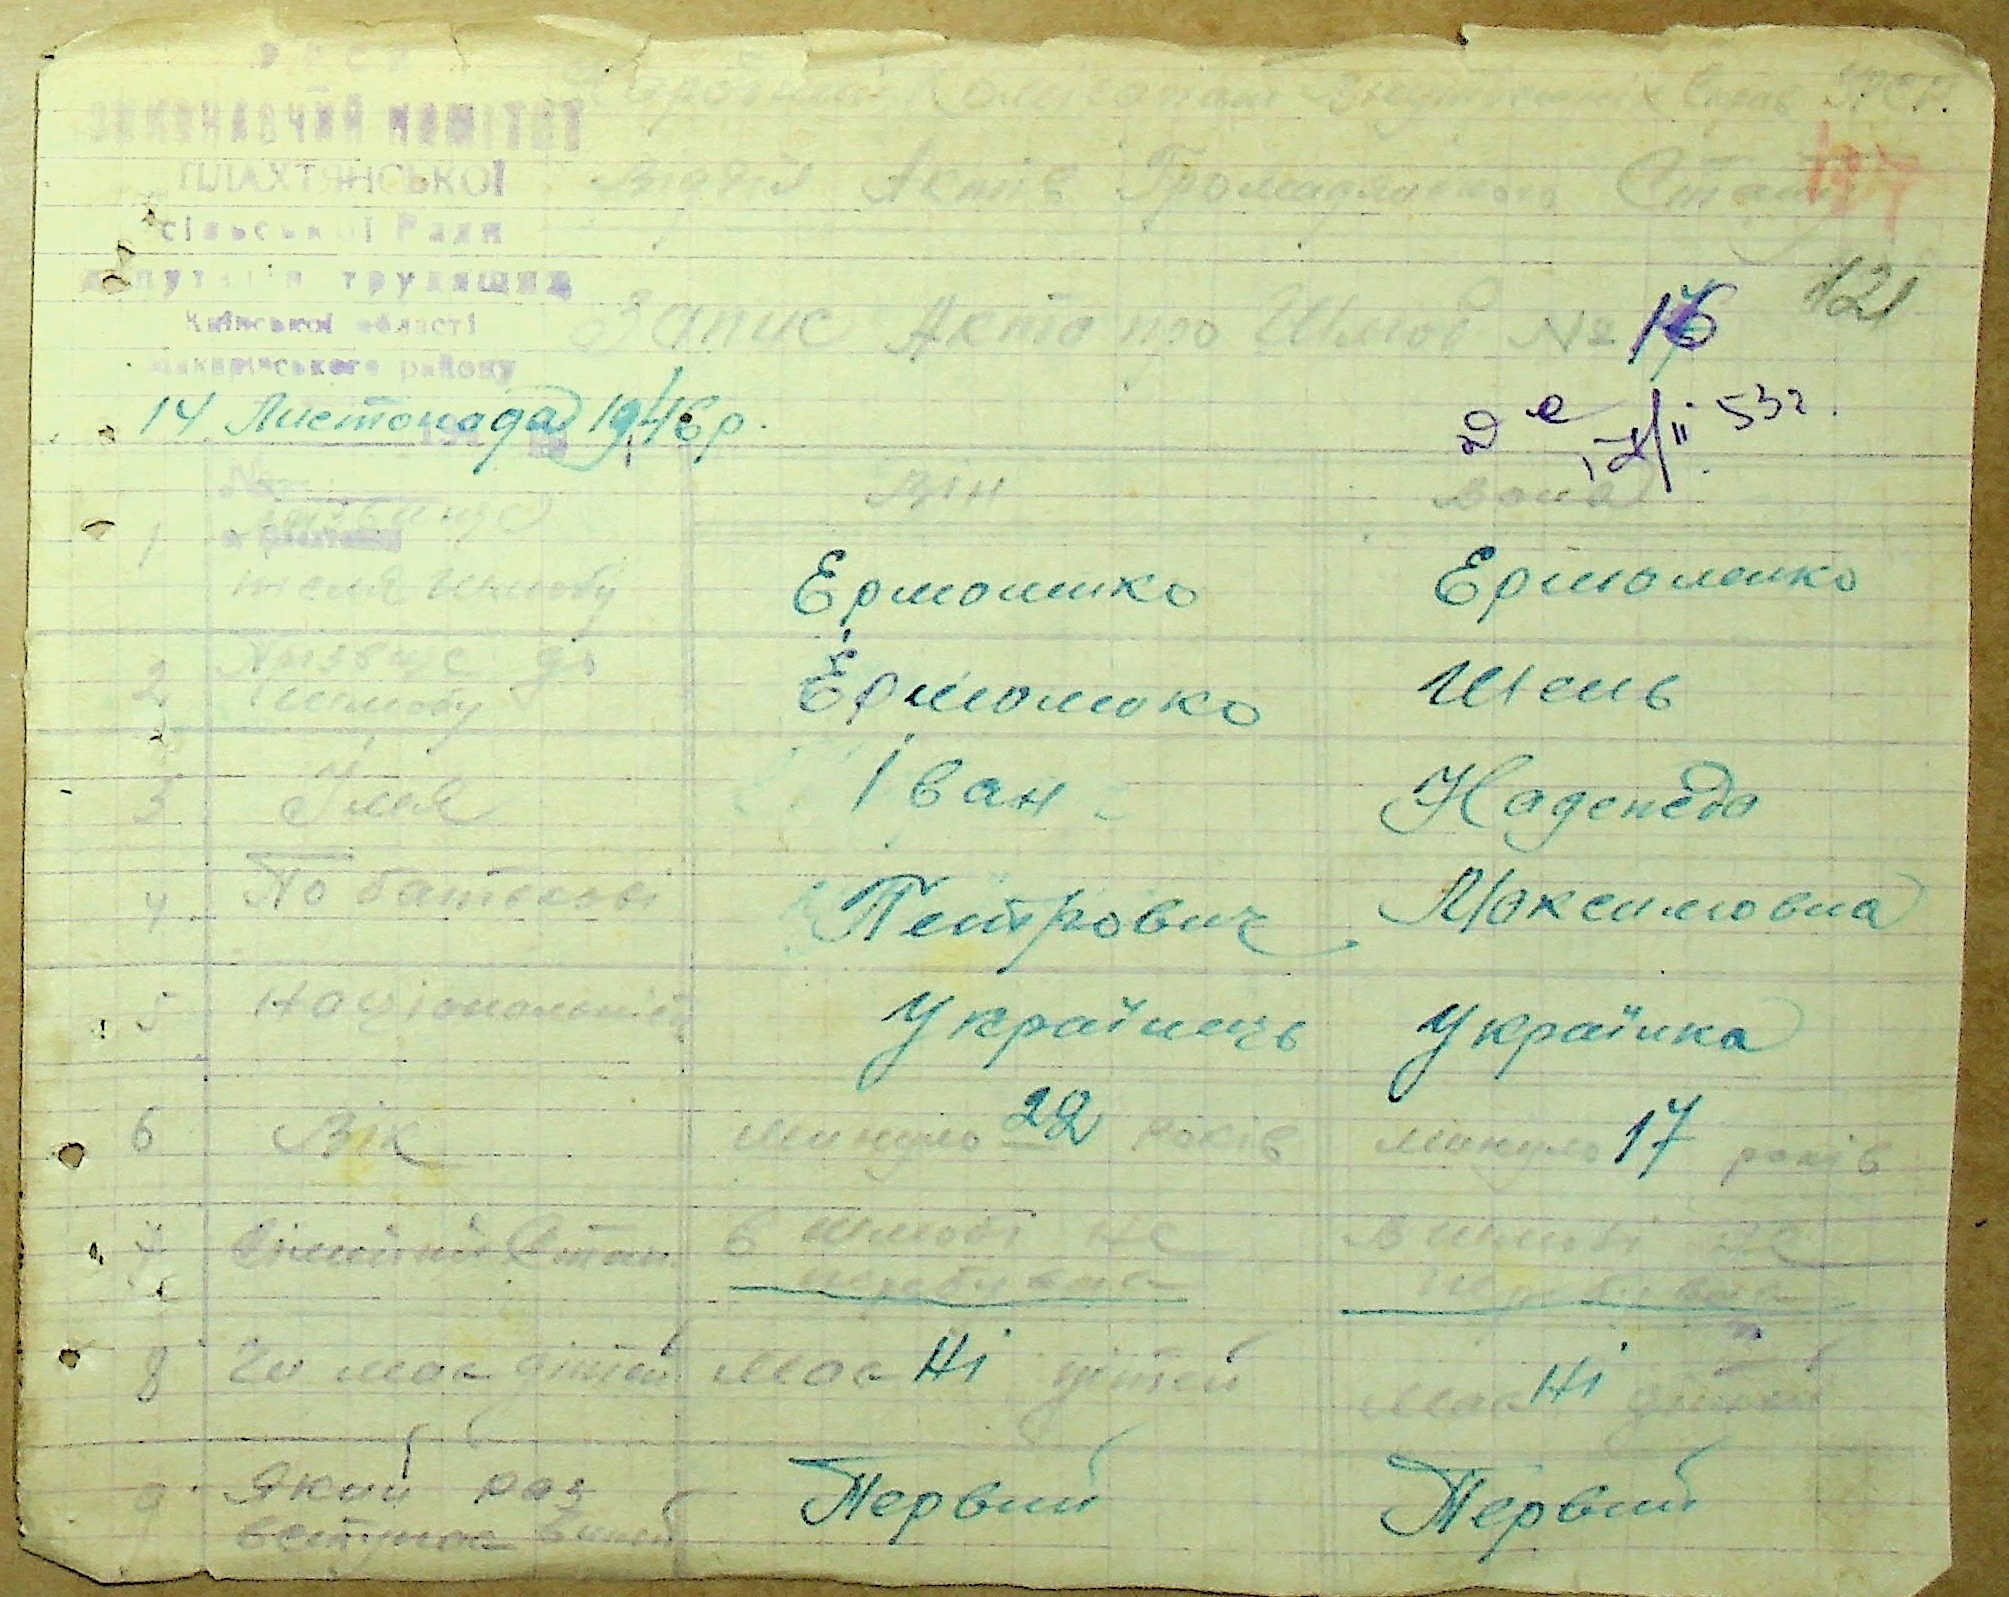 УРСР
ВИКОНАВЧИЙ КОМІТЕТ
ПЛАХТЯНСЬКОЇ
сільської Ради
депутатів трудящих
Київської області
Макарівського району
Народний Комісаріат Внутрішніх Справ УРСР.
Відділ Актів Громадянського Стану
127
121
Запис Акта про Шлюб № 16
14 Листопада 1946 р.
53г.
Він Вона
1 Прізвище
після Шлюбу Ермоленко Ермоленко
2 Прізвище до
шлюбу Ермоленко Шень
3 Імя Іван Надежда
4 По батькові Петрович Максимовна
5 Національність Українець Українка
6 Вік Минуло 22 років Минуло 17 років
7 Сімейний Стан В шлюбі не В шлюбі не
перебував перебувала
8 Чи має дітей Має Ні дітей Має Ні дітей
9 Який раз Первий Первий
вступає